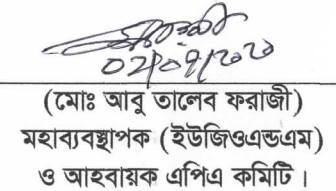 ০২/০৭/২০২০
(মোঃ আবু তালেব ফরাজী)
মহাব্যবস্থাপক (ইউজিওএন্ডএম)
ও আহবায়ক এপিএ কমিটি।